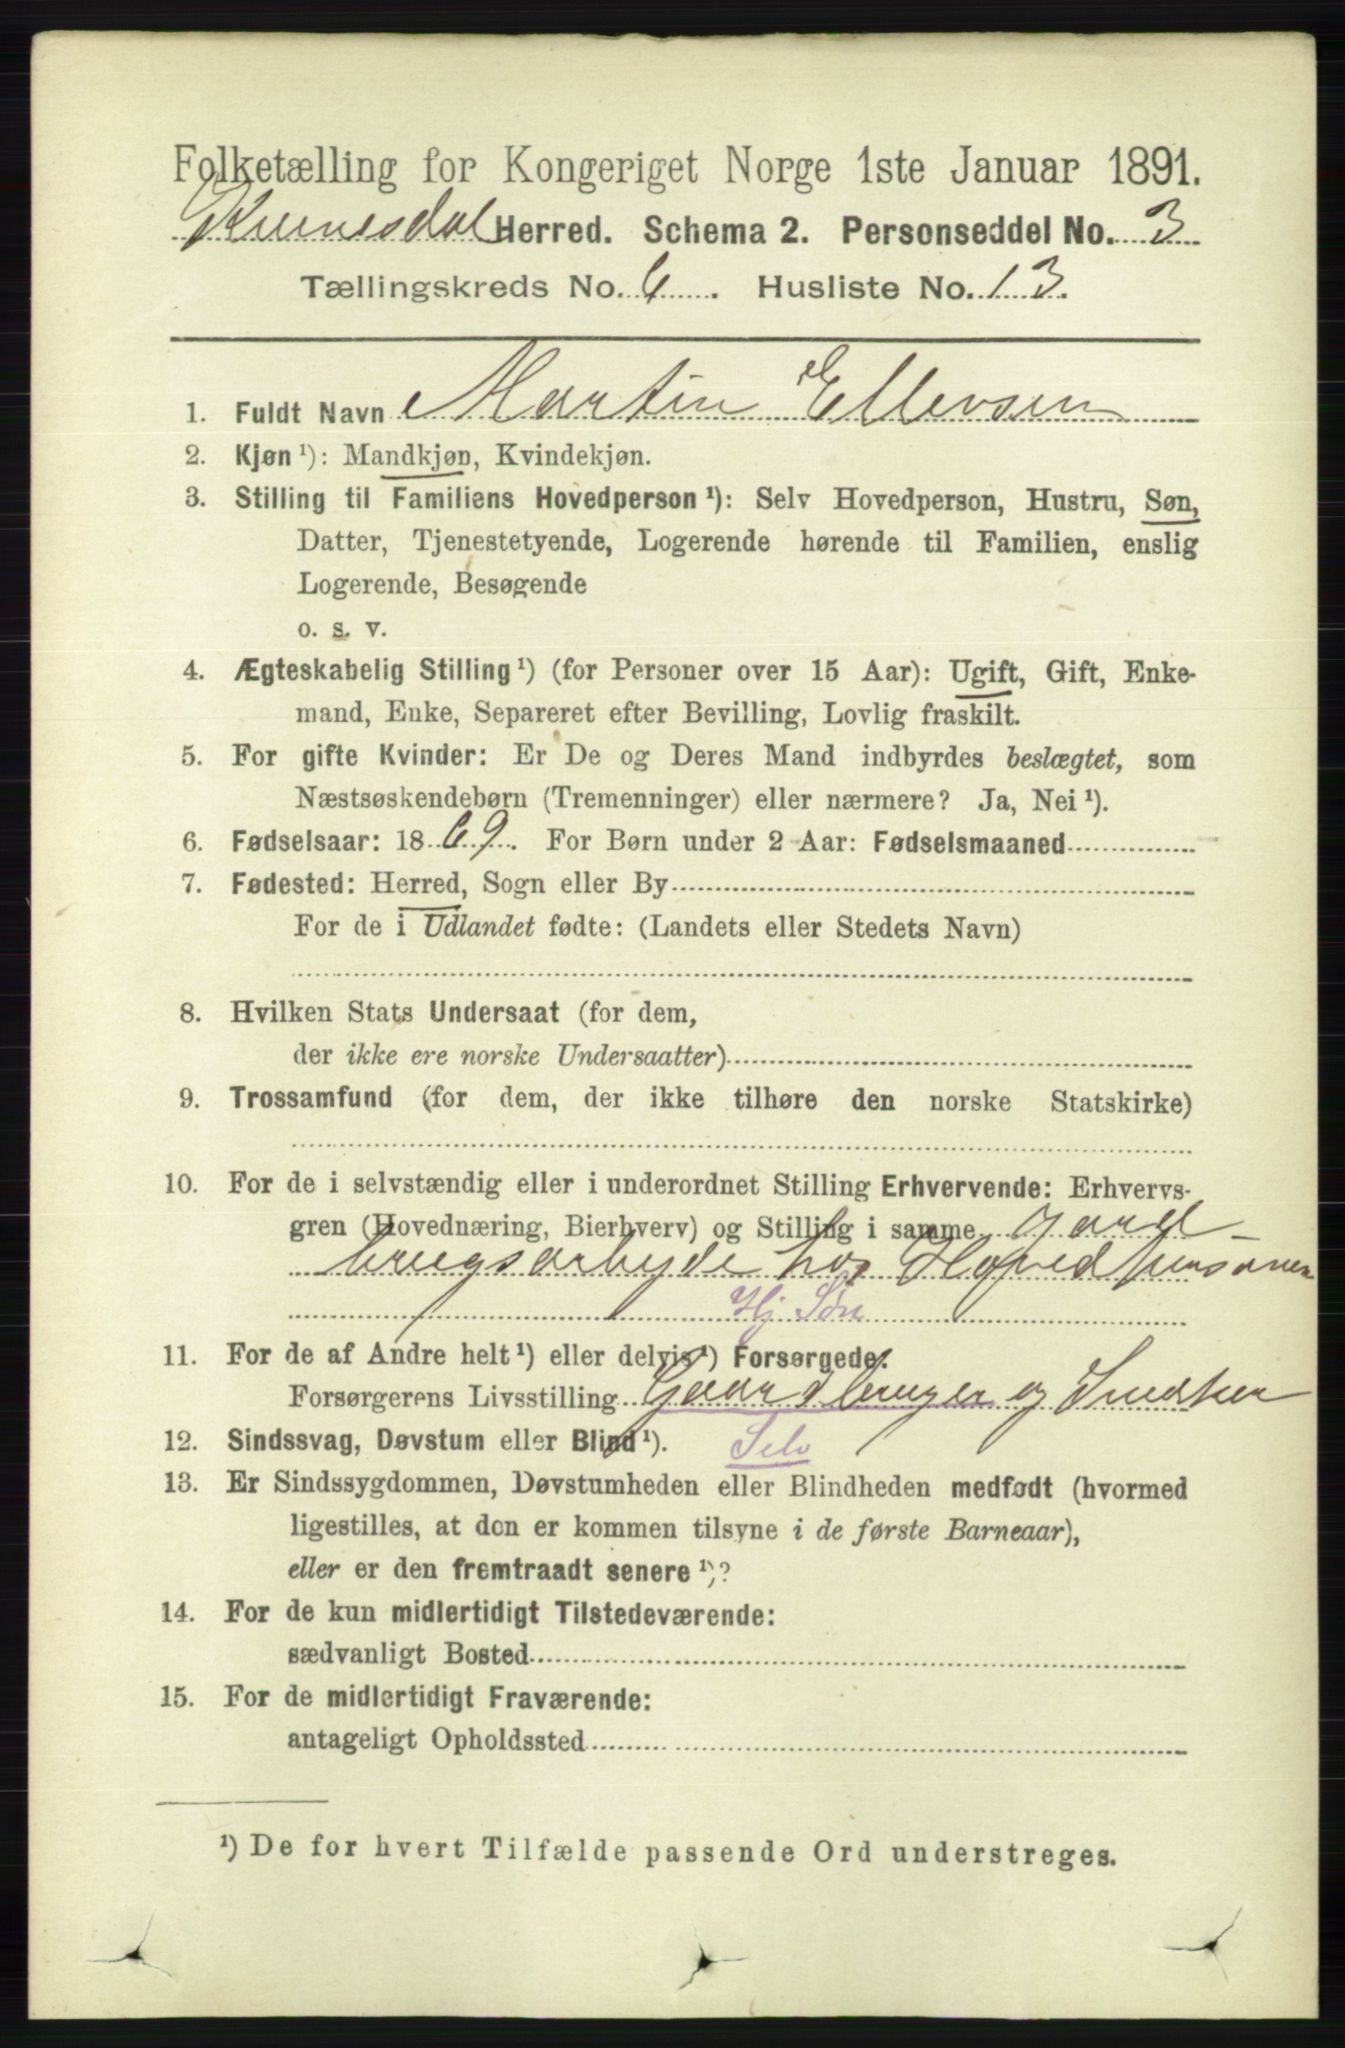 Folketælling for Kongeriget Norge 1ste Januar 1891.
Kvinesdal Herred. Schema 2. Personseddel No. 3
Tællingskreds No. 6. Husliste No. 13.
1. Fuldt Navn Martin Ellevsen
2. Kjøn ¹): Mandkjøn, Kvindekjøn.
3. Stilling til Familiens Hovedperson ¹): Selv Hovedperson, Hustru, Søn,
Datter, Tjenestetyende, Logerende hørende til Familien, enslig
Logerende, Besøgende
o. s. v.
4. Ægteskabelig Stilling ¹) (for Personer over 15 Aar): Ugift, Gift, Enke-
mand, Enke, Separeret efter Bevilling, Lovlig fraskilt.
5. For gifte Kvinder: Er De og Deres Mand indbyrdes beslægtet, som
Næstsøskendebørn (Tremenninger) eller nærmere? Ja, Nei ¹).
6. Fødselsaar: 1869. For Børn under 2 Aar: Fødselsmaaned
7. Fødested: Herred, Sogn eller By
For de i Udlandet fødte: (Landets eller Stedets Navn)
8. Hvilken Stats Undersaat (for dem,
der ikke ere norske Undersaatter)
9. Trossamfund (for dem, der ikke tilhøre den norske Statskirke)
10. For de i selvstændig eller i underordnet Stilling Erhvervende: Erhvervs-
gren (Hovednæring, Bierhverv) og Stilling i samme Jord-
brugsarbyde hos Hovedpersonen
Hj Søn
11. For de af Andre helt ¹) eller delvis ¹) Forsørgede.
Forsørgerens Livsstilling Gaardbruger og Snedker
12. Sindssvag, Døvstum eller Blind ¹). Selv
13. Er Sindssygdommen, Døvstumheden eller Blindheden medfødt (hvormed
ligestilles, at den er kommen tilsyne i de første Barneaar),
eller er den fremtraadt senere ¹)?
14. For de kun midlertidigt Tilstedeværende:
sædvanligt Bosted
15. For de midlertidigt Fraværende:
antageligt Opholdssted
¹) De for hvert Tilfælde passende Ord understreges.